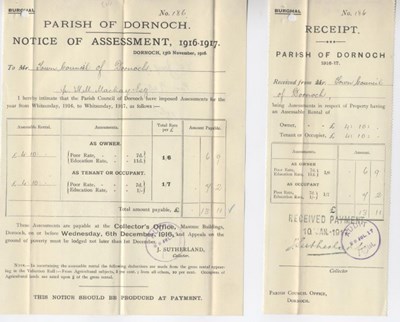 BURGHAL
No. 186
PARISH OF DORNOCH.
NOTICE OF ASSESSMENT, 1916-1917.
DORNOCH, 13th November, 1916
To Mr. Town Council of Dornoch
I hereby intimate that the Parish Council of Dornoch have imposed Assessments for the
year from Whitsunday, 1916, to Whitsunday, 1917, as follows:—
Assessable Rental.
Assessments.
Total Rate per £
Amount Payable.
AS OWNER.
£ 4 10
Poor Rate, - - 7d.
Education Rate, - 11d.
1/6
6 9
AS TENANT OR OCCUPANT.
£ 4 10
Poor Rate, - -
Education Rate,
1/7
7 2
Total amount payable, £
13 11
These Assessments are payable at the Collector's Office, Masonic Buildings,
Dornoch, on or before Wednesday, 6th December, 1916, and Appeals on the
ground of poverty must be lodged not later than 1st December
J. SUTHERLAND,
Collector.
THIS NOTICE SHOULD BE PRODUCED AT PAYMENT.
BURGHAL
No. 186
RECEIPT.
PARISH OF DORNOCH
1916-17.
Received from Mr. Town Council
of Dornoch,
being Assessments in respect of Property having
an Assessable Rental of
Owner, £ 4 10
Tenant or Occupier, £ 4 10
ASSESSMENTS.
AMOUNT
AS OWNER
Poor Rate,
Education Rate,
6 9
AS OCCUPANT
Poor Rate,
Education Rate,
7 2
£ 13 11
RECEIVED PAYMENT
Collector
PARISH COUNCIL OFFICE,
DORNOCH.